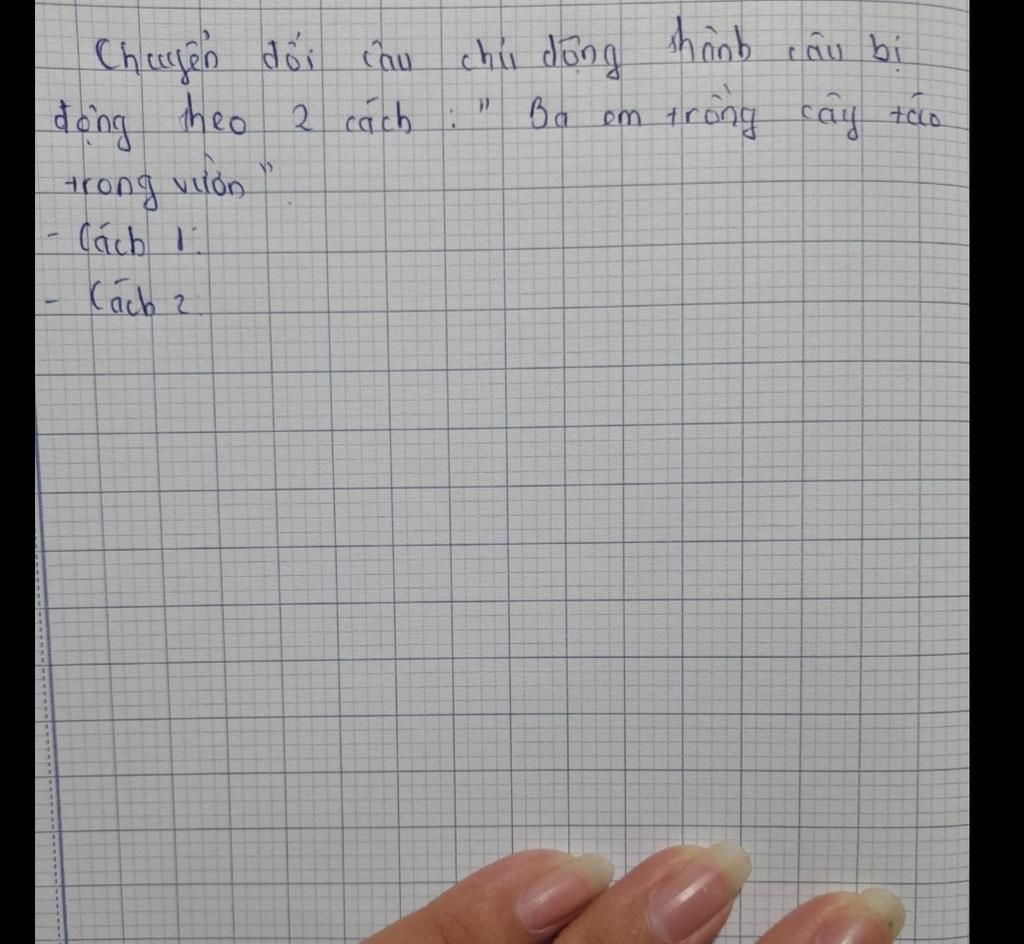 Chuyển đổi câu chủ động thành câu bị
động theo 2 cách : " Ba em trồng cây táo
trong vườn ".
- Cách 1:
- Cách 2: